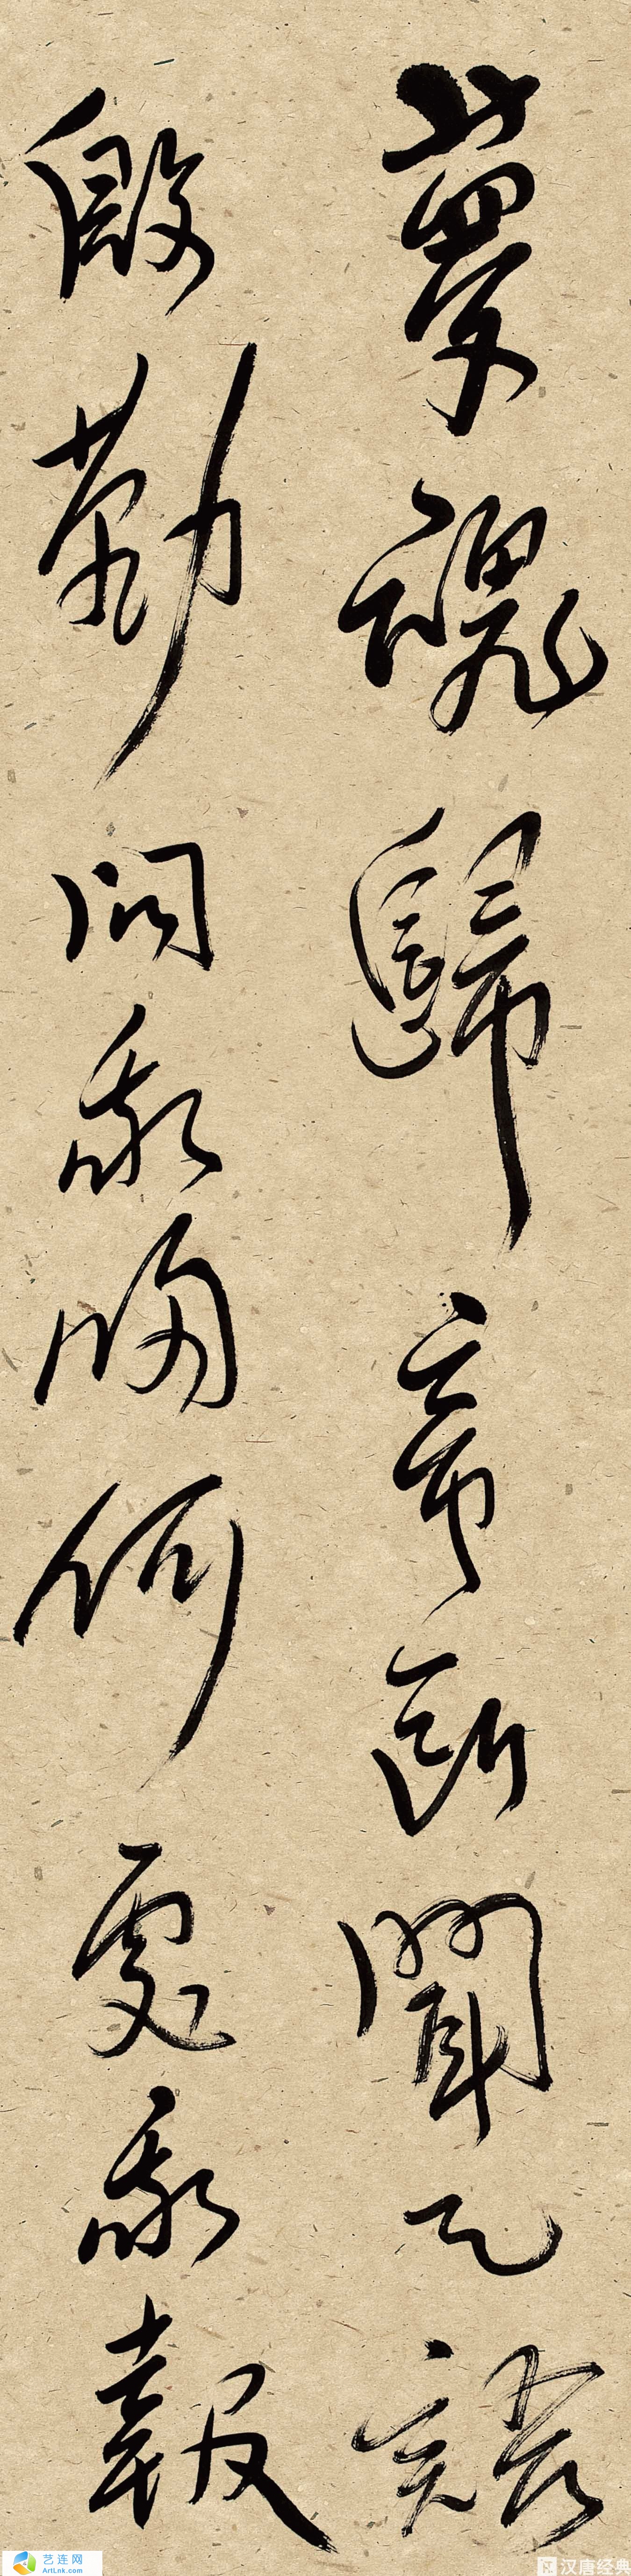 夢魂歸帝所聞天語
殷勤問我歸何處我報
艺连网
ArtLnk.com
汉唐经典